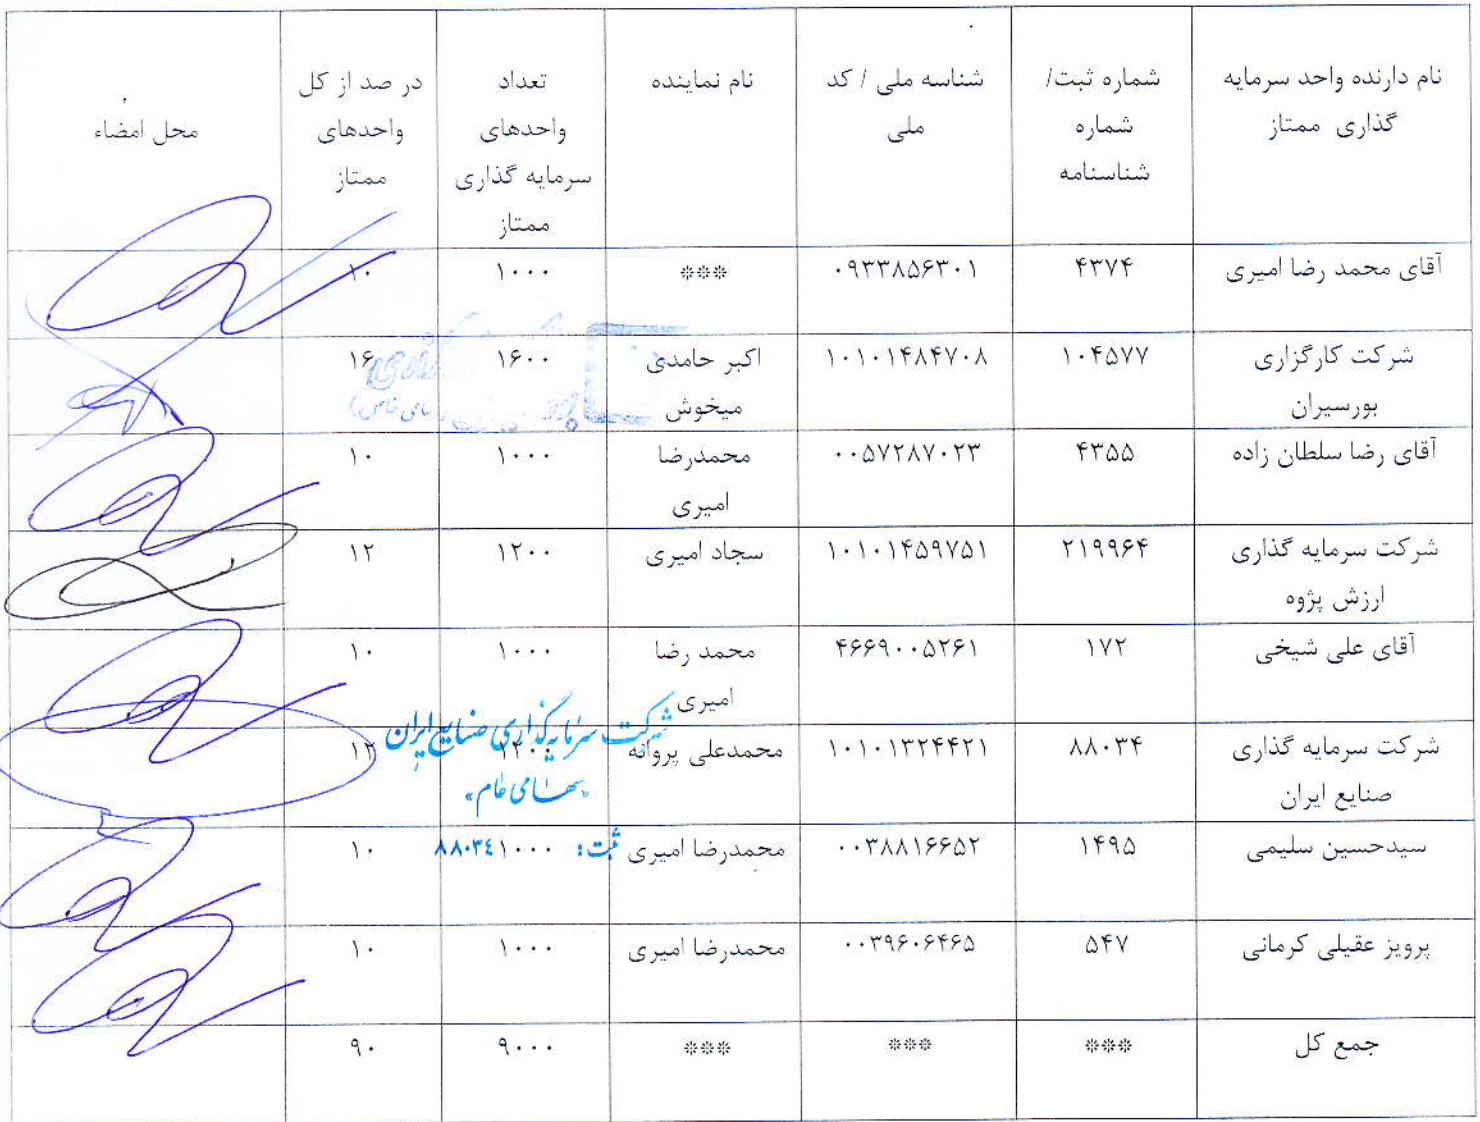 نام دارنده واحد سرمایه گذاری ممتاز | شماره ثبت/ شماره شناسنامه | شناسه ملی / کد ملی | نام نماینده | تعداد واحدهای سرمایه گذاری ممتاز | در صد از کل واحدهای ممتاز | محل امضاء
آقای محمد رضا امیری | ۴۳۷۴ | ۰۹۳۳۸۵۶۳۰۱ | *** | ۱۰۰۰ | ۱۰
شرکت کارگزاری بورسیران | ۱۰۴۵۷۷ | ۱۰۱۰۱۴۸۴۷۰۸ | اکبر حامدی میخوش | ۱۶۰۰ | ۱۶
آقای رضا سلطان زاده | ۴۳۵۵ | ۰۰۵۷۲۸۷۰۲۳ | محمدرضا امیری | ۱۰۰۰ | ۱۰
شرکت سرمایه گذاری ارزش پژوه | ۲۱۹۹۶۴ | ۱۰۱۰۱۴۵۹۷۵۱ | سجاد امیری | ۱۲۰۰ | ۱۲
آقای علی شیخی | ۱۷۲ | ۴۶۶۹۰۰۵۲۶۱ | محمد رضا امیری | ۱۰۰۰ | ۱۰
شرکت سرمایه گذاری صنایع ایران | ۸۸۰۳۴ | ۱۰۱۰۱۳۲۴۴۲۱ | محمدعلی پروانه | ۱۲۰۰ | ۱۲
شرکت سرمایه گذاری صنایع ایران
«سهامی عام»
ثبت: ۸۸۰۳۴
سیدحسین سلیمی | ۱۴۹۵ | ۰۰۳۸۸۱۶۶۵۲ | محمدرضا امیری | ۱۰۰۰ | ۱۰
پرویز عقیلی کرمانی | ۵۴۷ | ۰۰۳۹۶۰۶۴۶۵ | محمدرضا امیری | ۱۰۰۰ | ۱۰
جمع کل | *** | *** | *** | ۹۰۰۰ | ۹۰